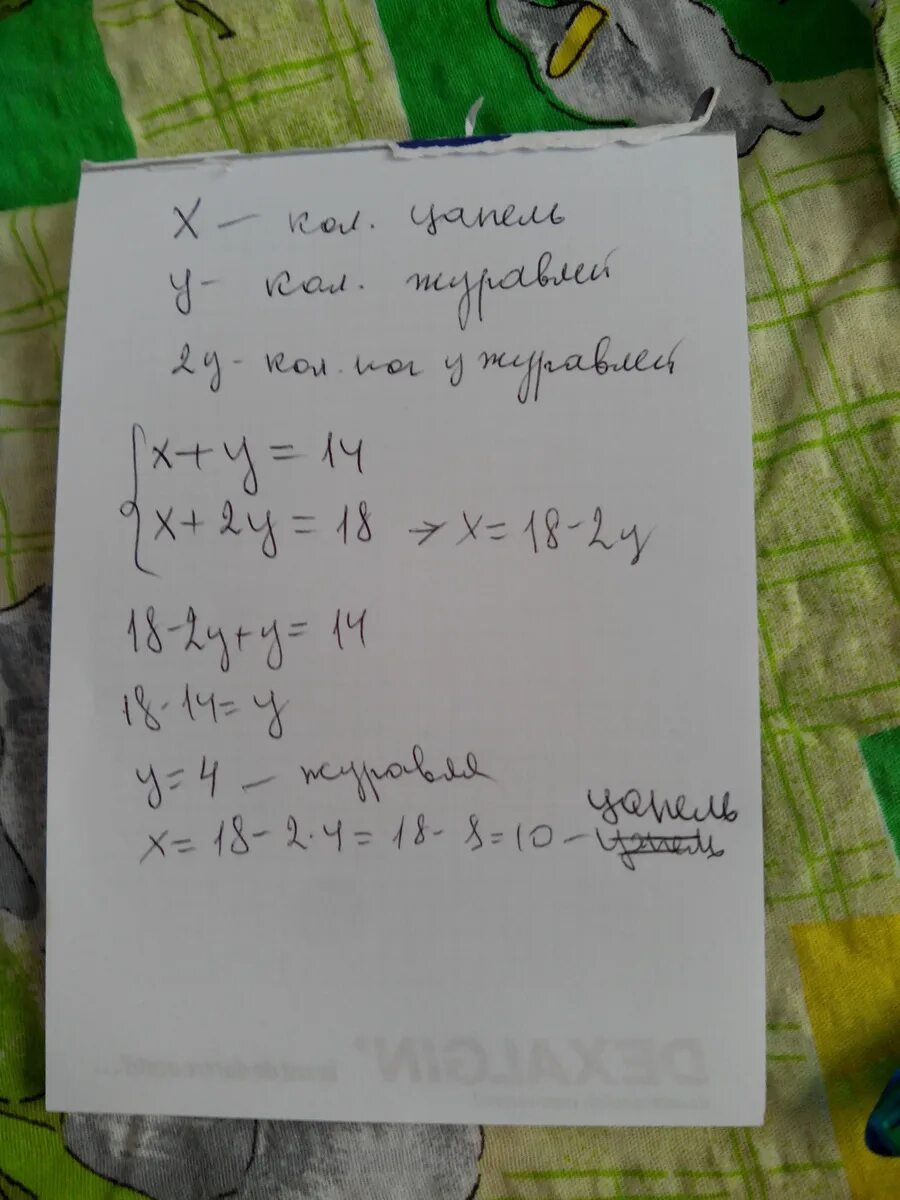 x – кол. цапель
y - кол. журавлей
2y - кол. ног у журавлей
x + y = 14
x + 2y = 18 → x = 18 - 2y
18 - 2y + y = 14
18 - 14 = y
y = 4 – журавля
цапель
x = 18 - 2·4 = 18 - 8 = 10 – цапель
DEXALGIN®